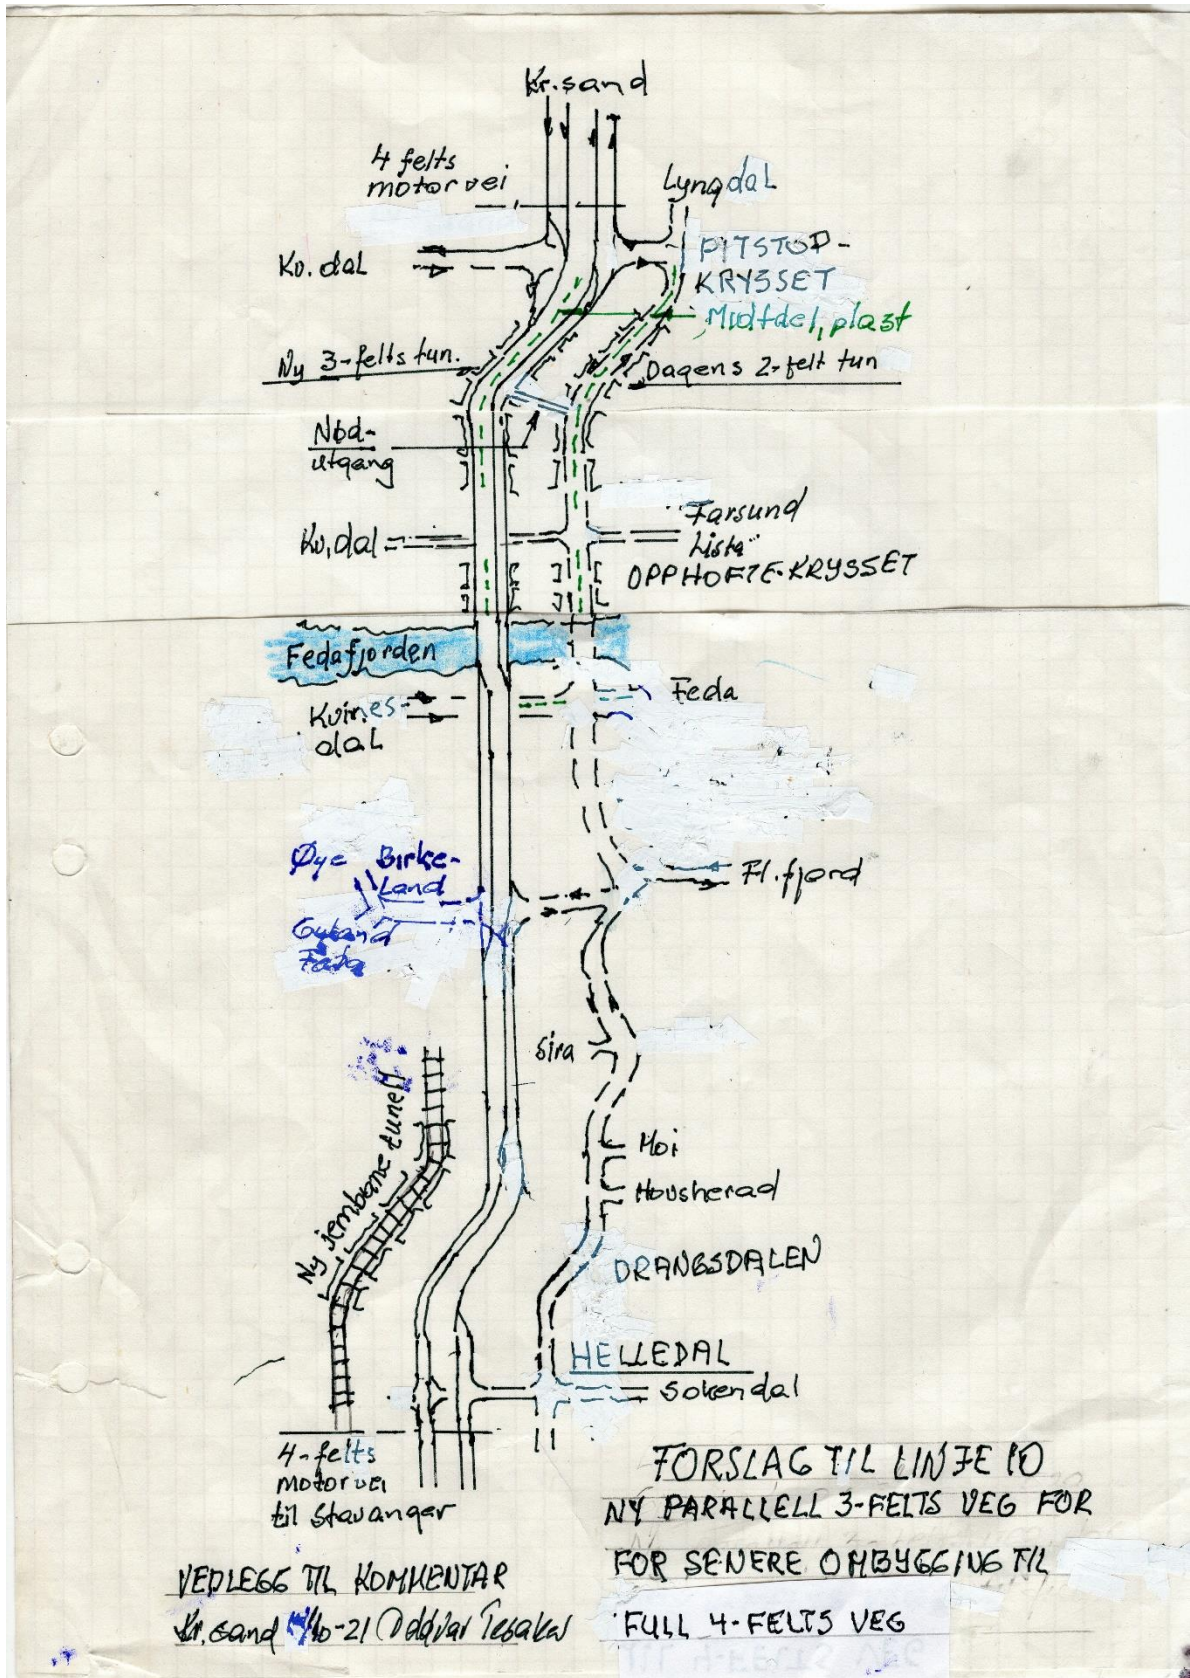 Kr.sand
4 felts
motorvei
Lyngdal
Kv.dal
PITSTOP-
KRYSSET
Midtdel, plast
Ny 3-felts tun.
Dagens 2-felt tun
Nød-
utgang
Farsund
Lista
Kv.dal
OPPHOFTE-KRYSSET
Fedafjorden
Feda
Kvines-
dal
Øye Birke-
land
Gyland
Fl.fjord
Sira
Moi
Ny jernbane tunell
Hovsherad
DRANGSDALEN
HELLEDAL
Sokendal
4-felts
motorvei
til Stavanger
FORSLAG TIL LINJE 10
NY PARALLELL 3-FELTS VEG FOR
FOR SENERE OMBYGGING TIL
FULL 4-FELTS VEG
VEDLEGG TIL KOMMENTAR
Kr.sand /10-21 Oddvar Tesaker